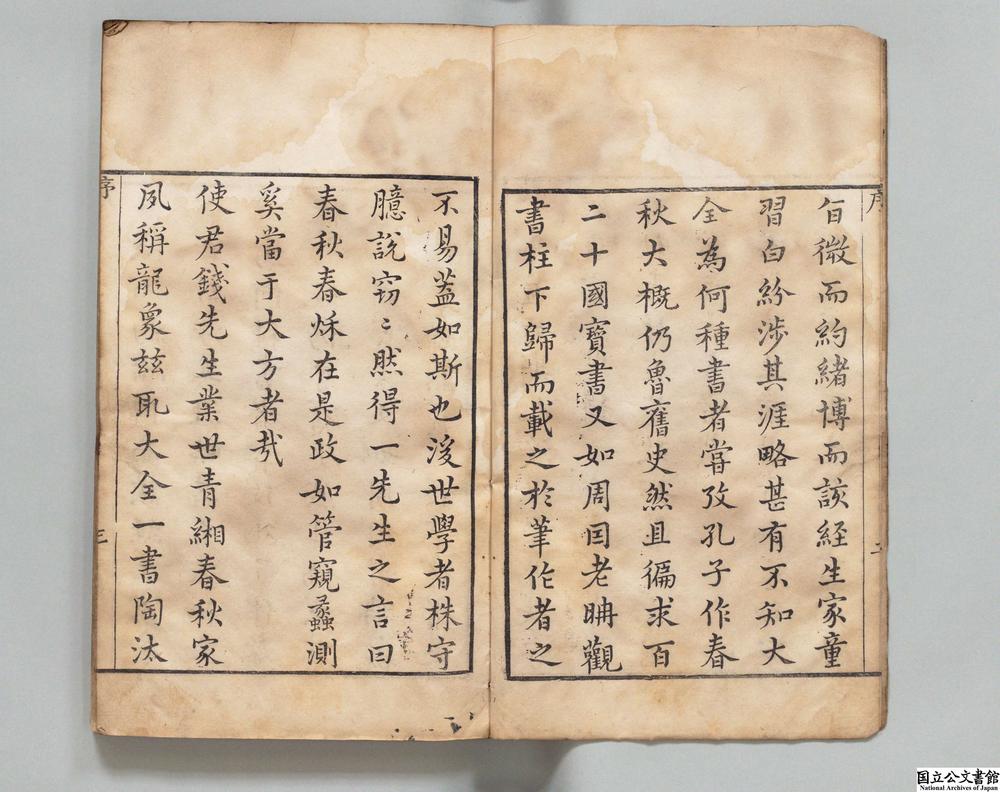 序
旨微而約緒博而該経生家童
習白紛涉其涯略甚有不知大
全為何種書者嘗攷孔子作春
秋大概仍魯舊史然且徧求百
二十國寶書又如周囙老聃觀
書柱下歸而載之於筆作者之
二
不易蓋如斯也後世學者株守
臆說窃〻然得一先生之言曰
春秋春秌在是政如管窺蠡測
奚當于大方者㢤
使君錢先生業世青緗春秋家
夙稱龍象玆取大全一書陶汰
序
三
国立公文書館
National Archives of Japan